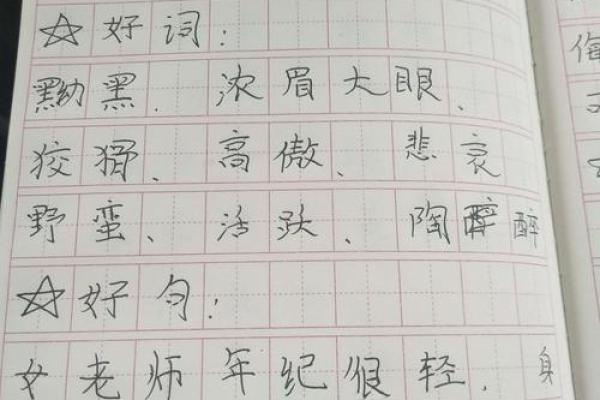 ☆好词：
黝黑、浓眉大眼、
狡猾、高傲、悲哀
野蛮、活跃、陶醉
☆好句：
女老师年纪很轻，身